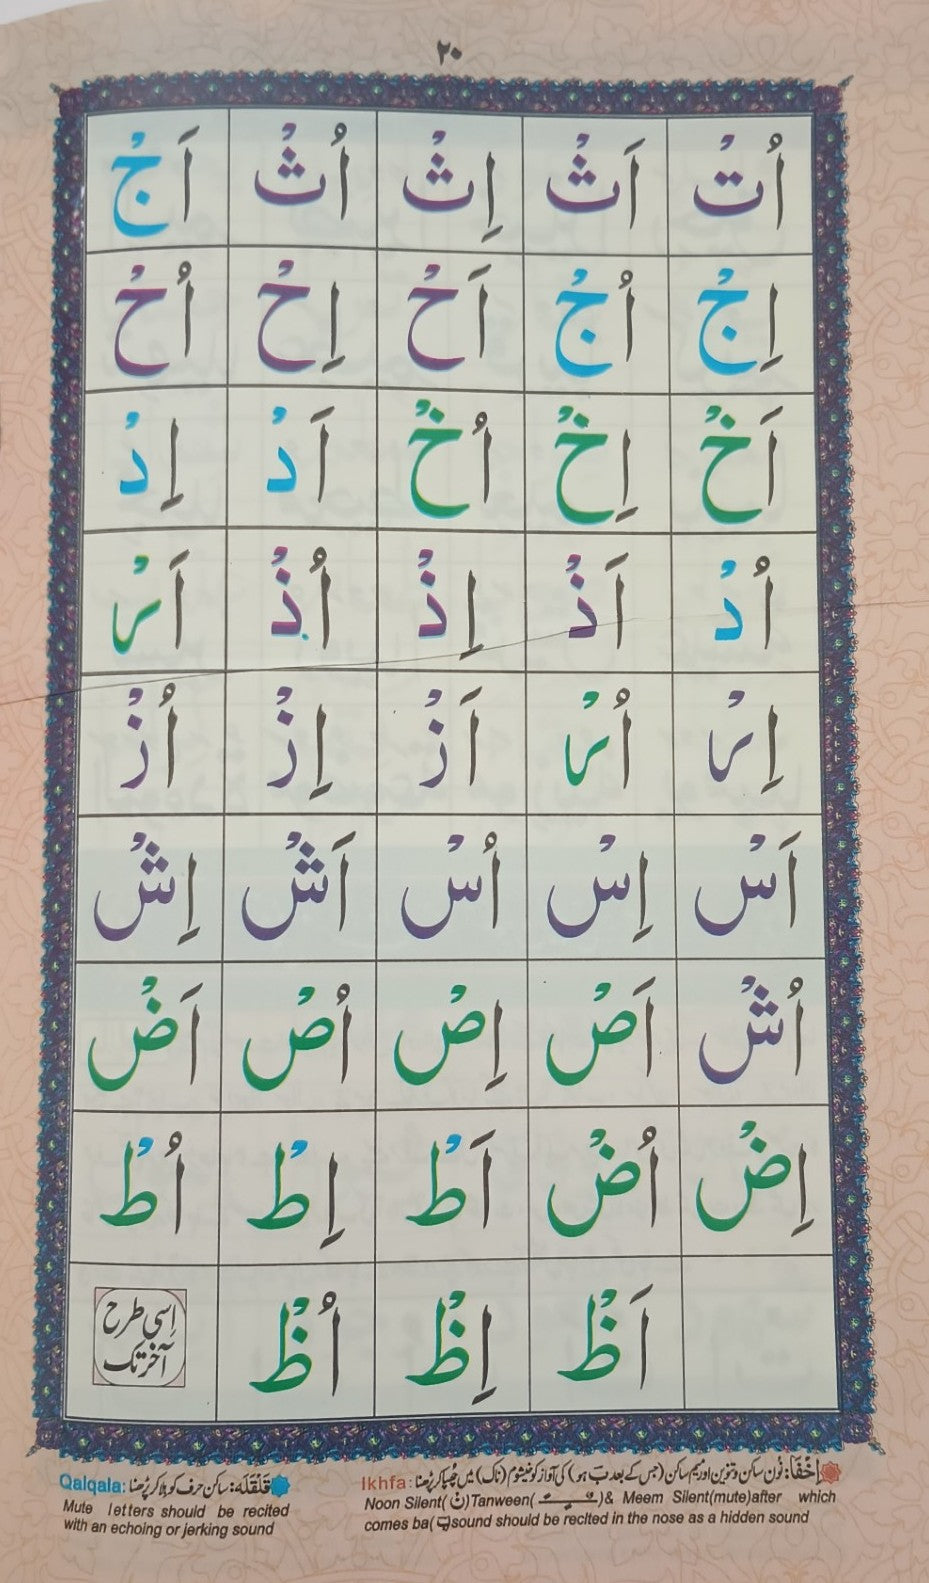 ۲۰
اُتْ اَثْ اِثْ اُثْ اَجْ
اِجْ اُجْ اَحْ اِحْ اُحْ
اَخْ اِخْ اُخْ اَدْ اِدْ
اُدْ اَذْ اِذْ اُذْ اَرْ
اِرْ اُرْ اَزْ اِزْ اُزْ
اَسْ اِسْ اُسْ اَشْ اِشْ
اُشْ اَصْ اِصْ اُصْ اَضْ
اِضْ اُضْ اَطْ اِطْ اُطْ
اَظْ اِظْ اُظْ
اِسی طرح
آخر تک
اِخْفَا: نُون ساکن و تنوین اور میم ساکن (جس کے بعد بَ ہو) کی آواز کو خیشوم (ناک) میں چُھپا کر پڑھنا :Ikhfa
Noon Silent( نْ )Tanween( ـًـ ـٍـ ـٌـ )& Meem Silent(mute)after which
comes ba( ب )sound should be recited in the nose as a hidden sound
قَلْقَلَہ: ساکن حرف کو ہلا کر پڑھنا :Qalqala
Mute letters should be recited
with an echoing or jerking sound